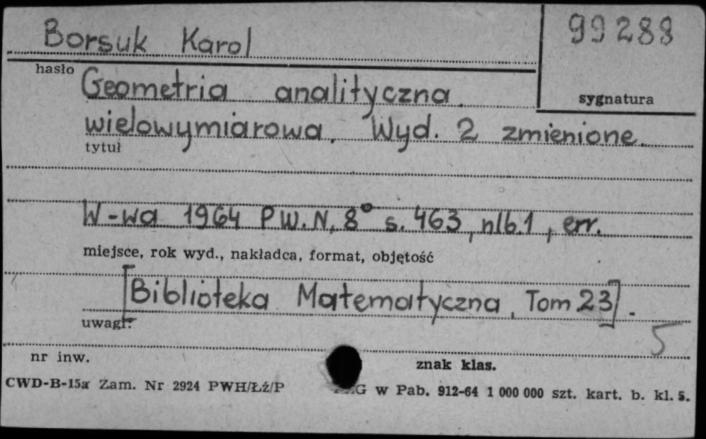 Borsuk Karol
99288
hasło
Geometria analityczna
sygnatura
wielowymiarowa. Wyd. 2 zmienione.
tytuł
W-wa 1964 P.W.N, 8° s. 463, nlb.1, err.
miejsce, rok wyd., nakładca, format, objętość
[Biblioteka Matematyczna, Tom 23].
uwagi:
5
nr inw.
znak klas.
CWD-B-15a Zam. Nr 2924 PWH/Łź/P
G w Pab. 912-64 1 000 000 szt. kart. b. kl. 5.